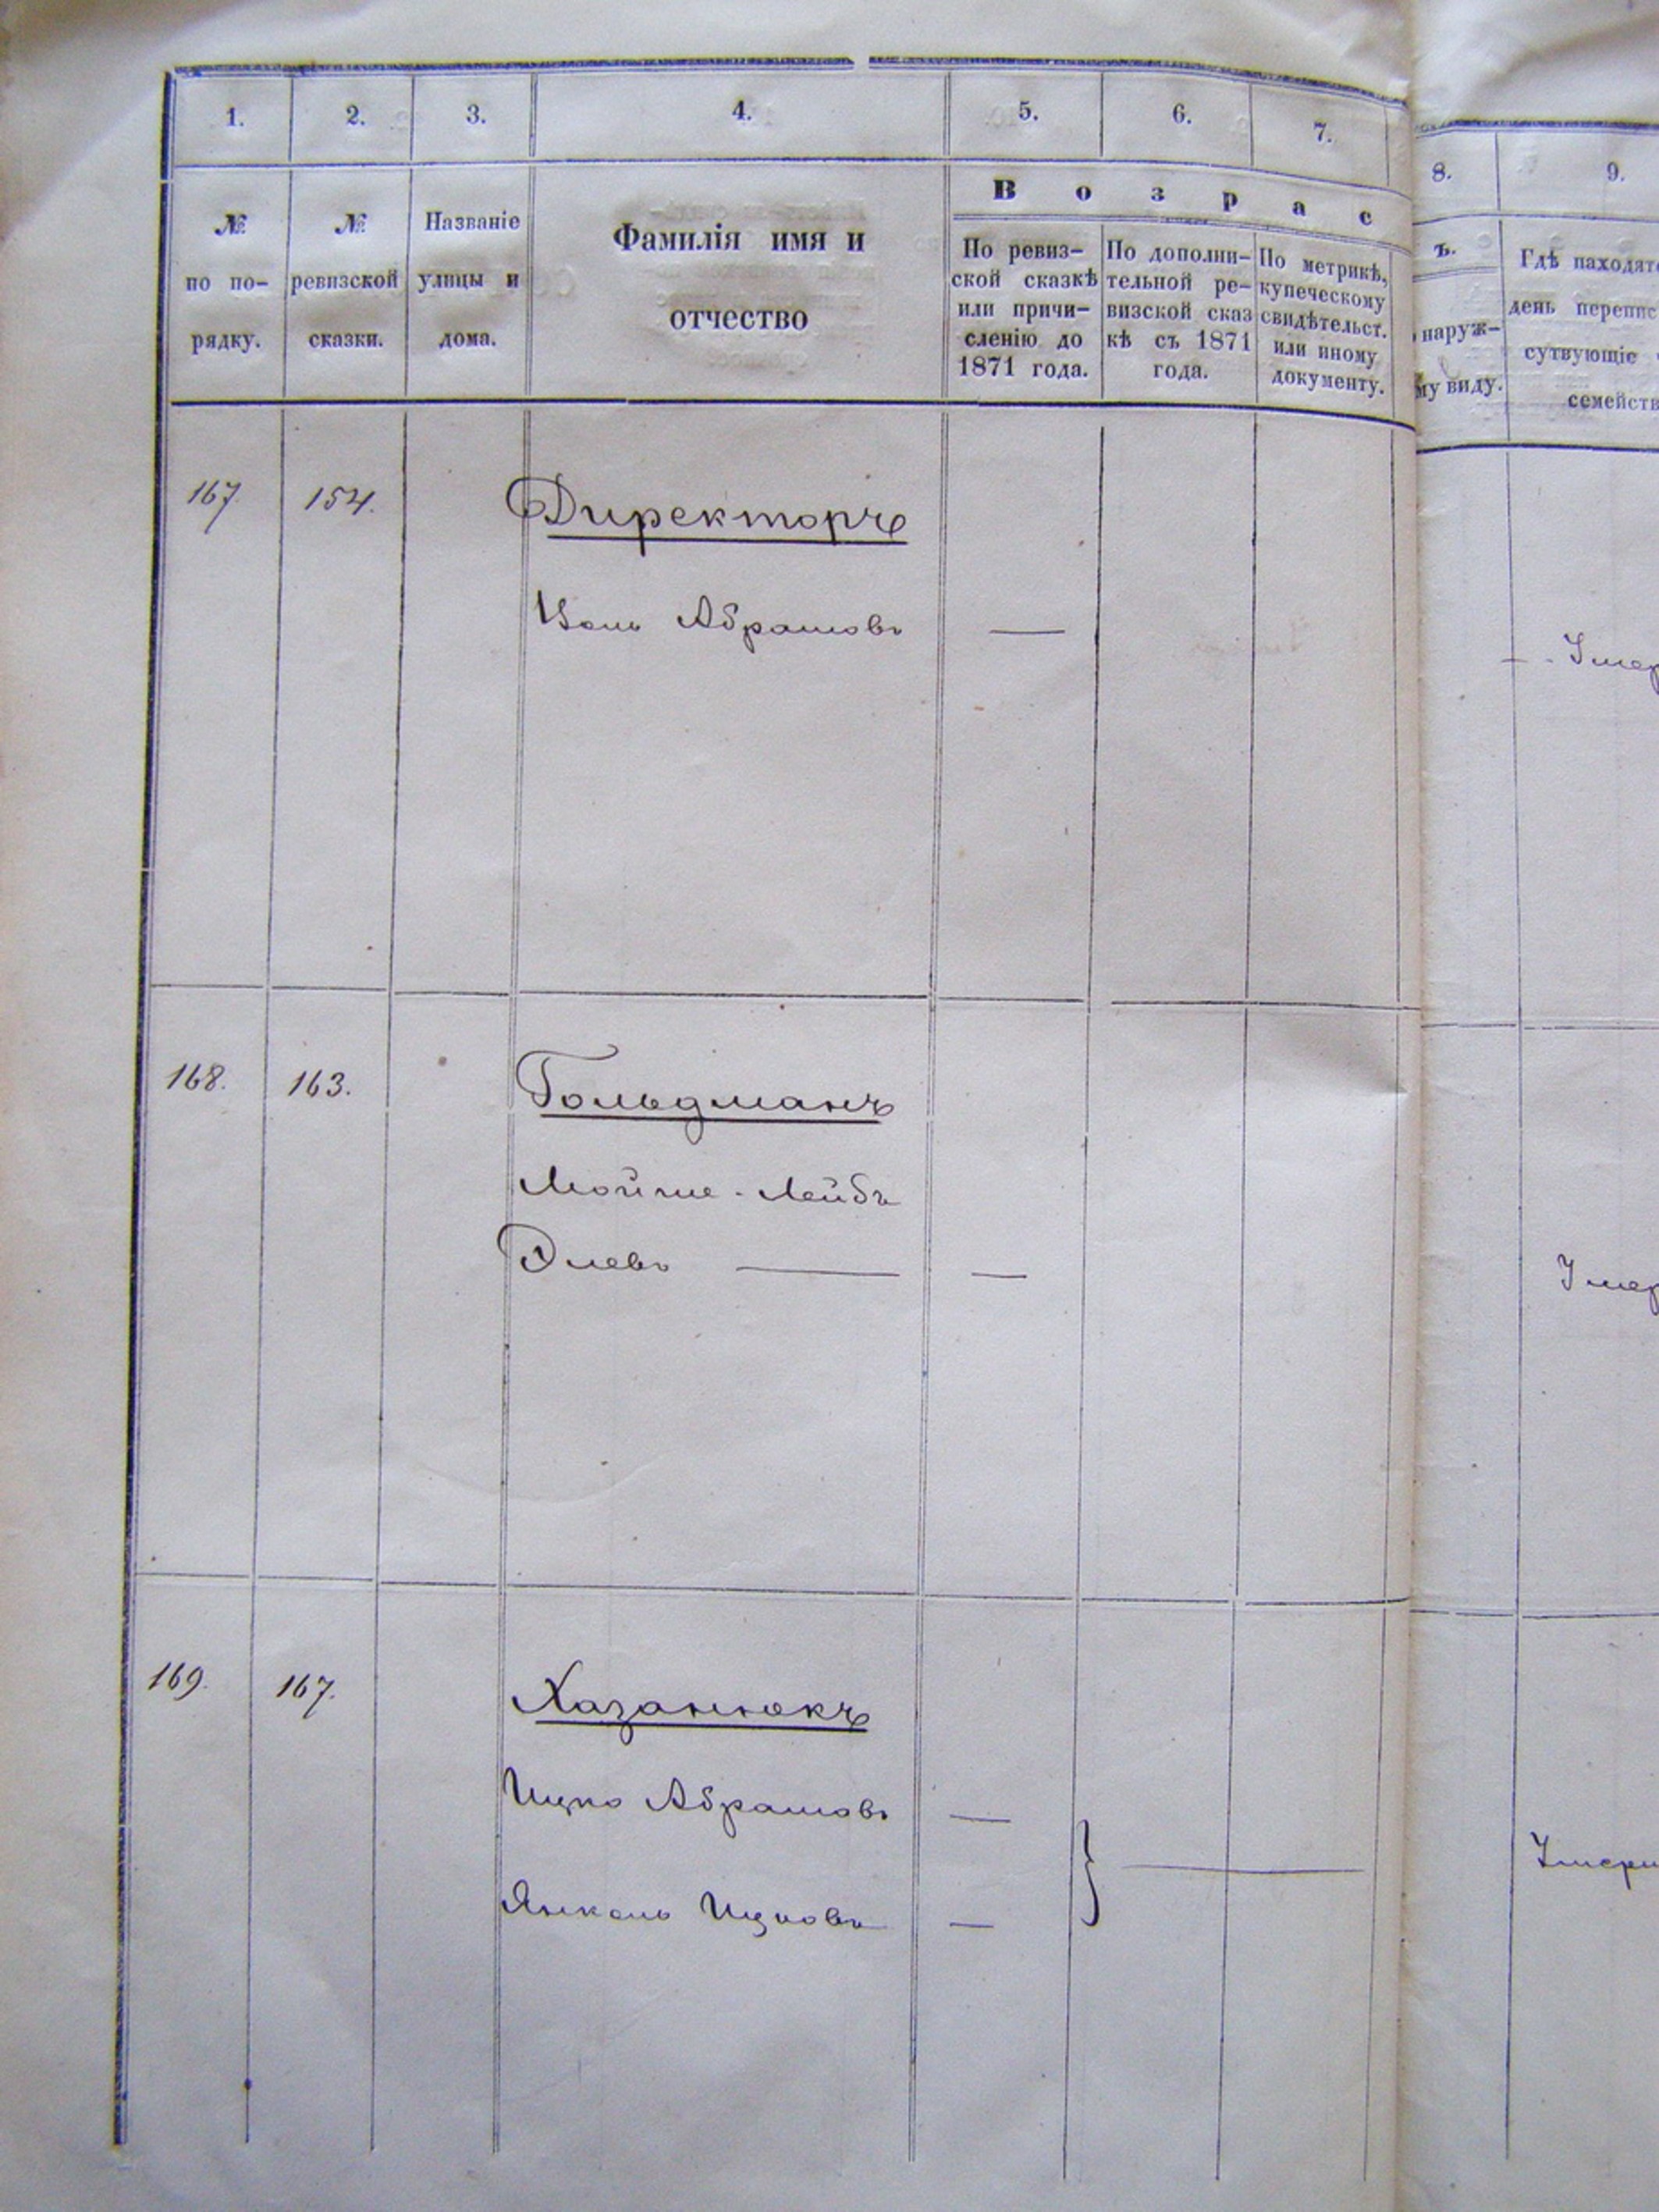 1. 2. 3. 4. 5. 6. 7. 8. 9.
В о з р а с ъ.
№ по по-рядку.
№ ревизской сказки.
Названіе улицы и дома.
Фамилія имя и
отчество
По ревиз-
ской сказкѣ
или причи-
сленію до
1871 года.
По дополни-
тельной ре-
визской сказ
кѣ съ 1871
года.
По метрикѣ,
купеческому
свидѣтельст.
или иному
документу.
наруж-
му виду.
Гдѣ находятс
день перепис
сутвующіе
семейств
167. 154. Директоръ
Абрамовъ —
— Умер
168. 163. Гольдманъ
Мойше-Лейбъ
Элевъ — —
Умер
169. 167. Хазанюкъ
Ицко Абрамовъ —
Умерш
Янкель Ицковъ —